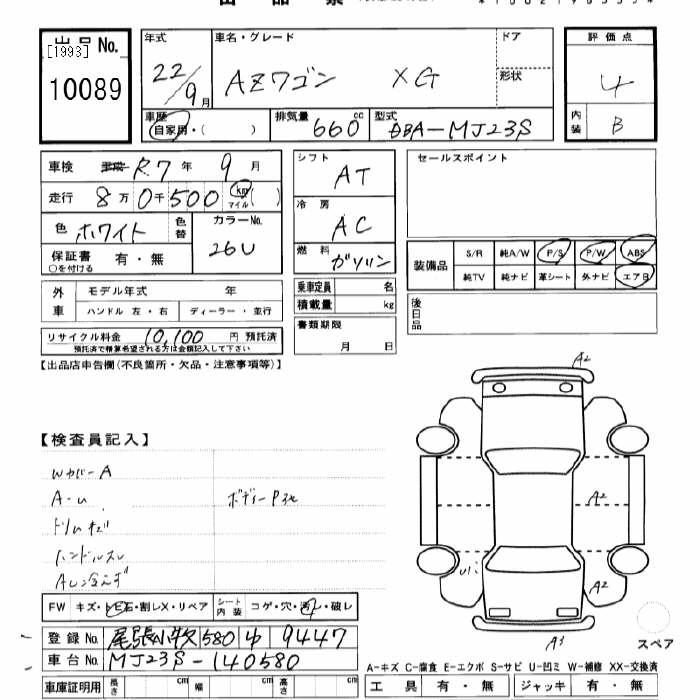 出品票
出品No.
[1993]
10089
年式
22/9月
車名・グレード
AZワゴン XG
ドア
形状
評価点
4
内装
B
車歴
自家用・( )
排気量
660cc
型式
DBA-MJ23S
車検 R.7年 9月
走行 8万0千500 km マイル( )
色 ホワイト 色替
カラーNo.
26U
保証書 有・無
○を付ける
シフト
AT
冷房
AC
燃料
ガソリン
セールスポイント
装備品
S/R 純A/W P/S P/W ABS
純TV 純ナビ 革シート 外ナビ エアB
外車
モデル年式 年
ハンドル 左・右 ディーラー・並行
乗車定員 名
積載量 kg
後日品
リサイクル料金 10,100円 預託済
預託済で精算希望される方は金額記入して下さい
書類期限
月 日
【出品店申告欄(不良箇所・欠品・注意事項等)】
A2
【検査員記入】
WカバーA
A-U
ボデーP3セ
ハンドルスレ
A2
U1
A2
FW キズ・LE・割レX・リペア
シート内装 コゲ・穴・汚レ・破レ
A3
スペア
登録No. 尾張小牧 580 や 9447
車台No. MJ23S-140580
A-キズ C-腐食 E-エクボ S-サビ U-凹ミ W-補修 XX-交換済
車庫証明用 長さ cm 幅 cm 高さ cm
工具 有・無 ジャッキ 有・無